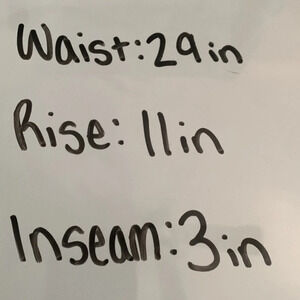 Waist: 29in
Rise: 11in
Inseam: 3in